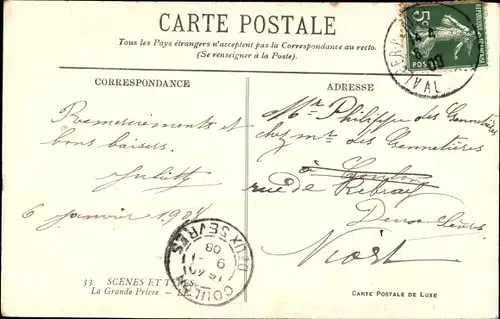 CARTE POSTALE
Tous les Pays étrangers n'acceptent pas la Correspondance au recto.
(Se renseigner à la Poste).
CORRESPONDANCE
ADRESSE
Remerciements et
bons baisers.
6 janvier 1908
Mr. Philippe des Gennetières
chez mr des Gennetières
à Coulon
rue de
Deux-Sèvres
Niort
5c
POSTES
VAL
DEUX SEVRES
COULON
9 -1
08
33 SCÈNES ET TYPES
La Grande Prière — LL
CARTE POSTALE DE LUXE